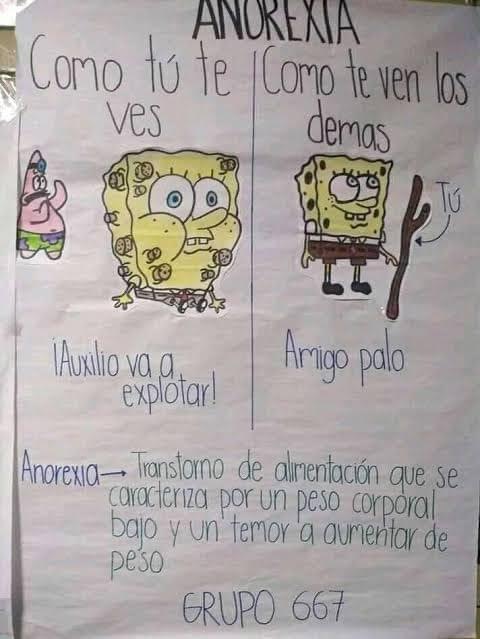 ANOREXIA
Como tú te
ves
Como te ven los
demas
Tú
¡Auxilio va a
explotar!
Amigo palo
Anorexia→ Transtorno de alimentación que se
caracteriza por un peso corporal
bajo y un temor a aumentar de
peso
GRUPO 667